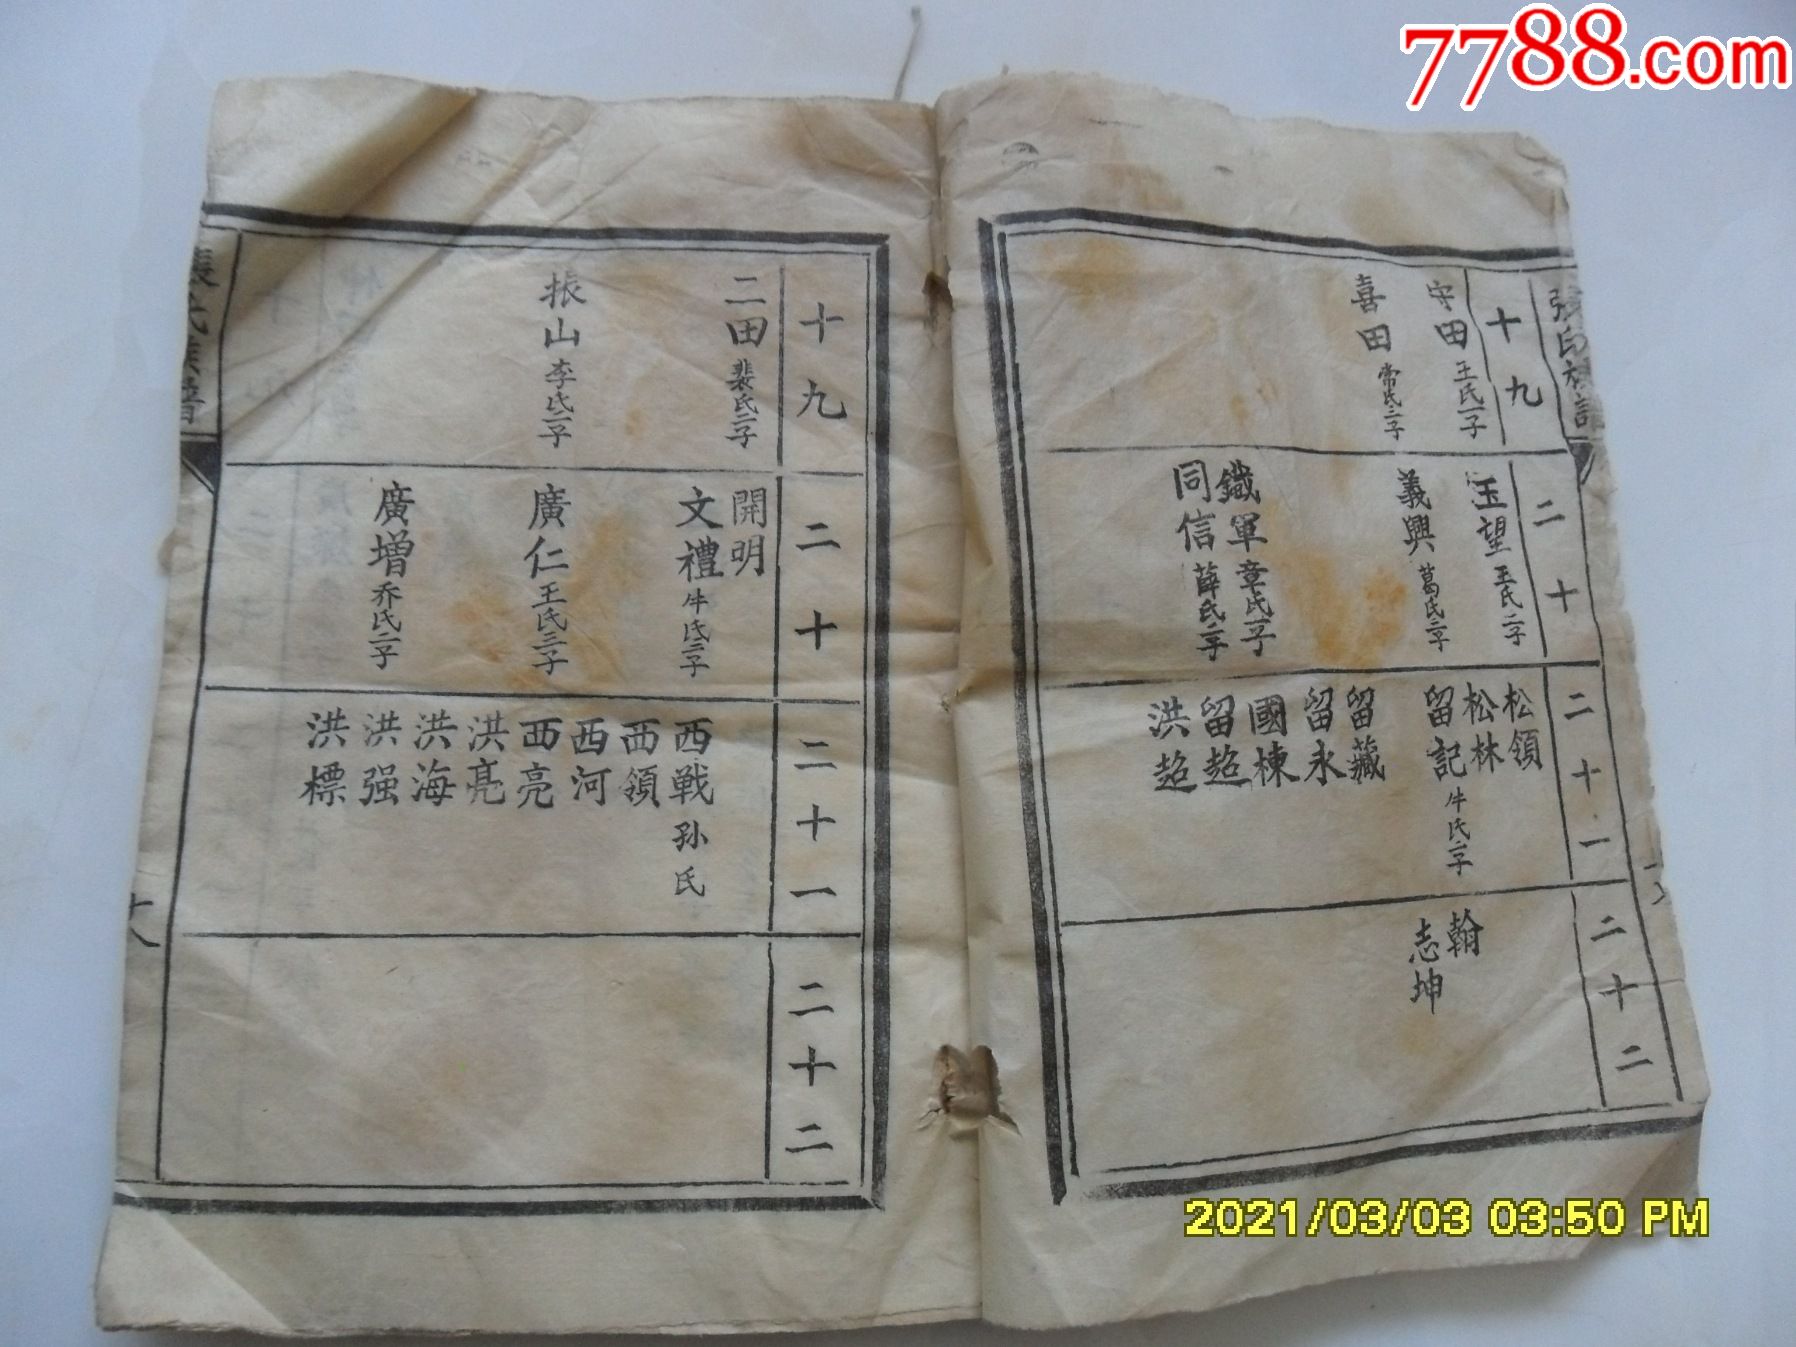 7788.com
張氏族譜
十九
守田 王氏一子
喜田 常氏二子
二十
玉望 王氏二子
義興 葛氏二子
鐵軍 章氏一子
同信 薛氏二子
二十一
松領
松林
留記 牛氏二子
留藏
留永
國棟
留超
洪超
二十二
翰
志坤
十九
二田 裴氏二子
振山 李氏二子
二十
開明
文禮 牛氏三子
廣仁 王氏三子
廣增 乔氏二子
二十一
西戰 孙氏
西領
西河
西亮
洪亮
洪海
洪强
洪標
二十二
張氏族譜
2021/03/03 03:50 PM